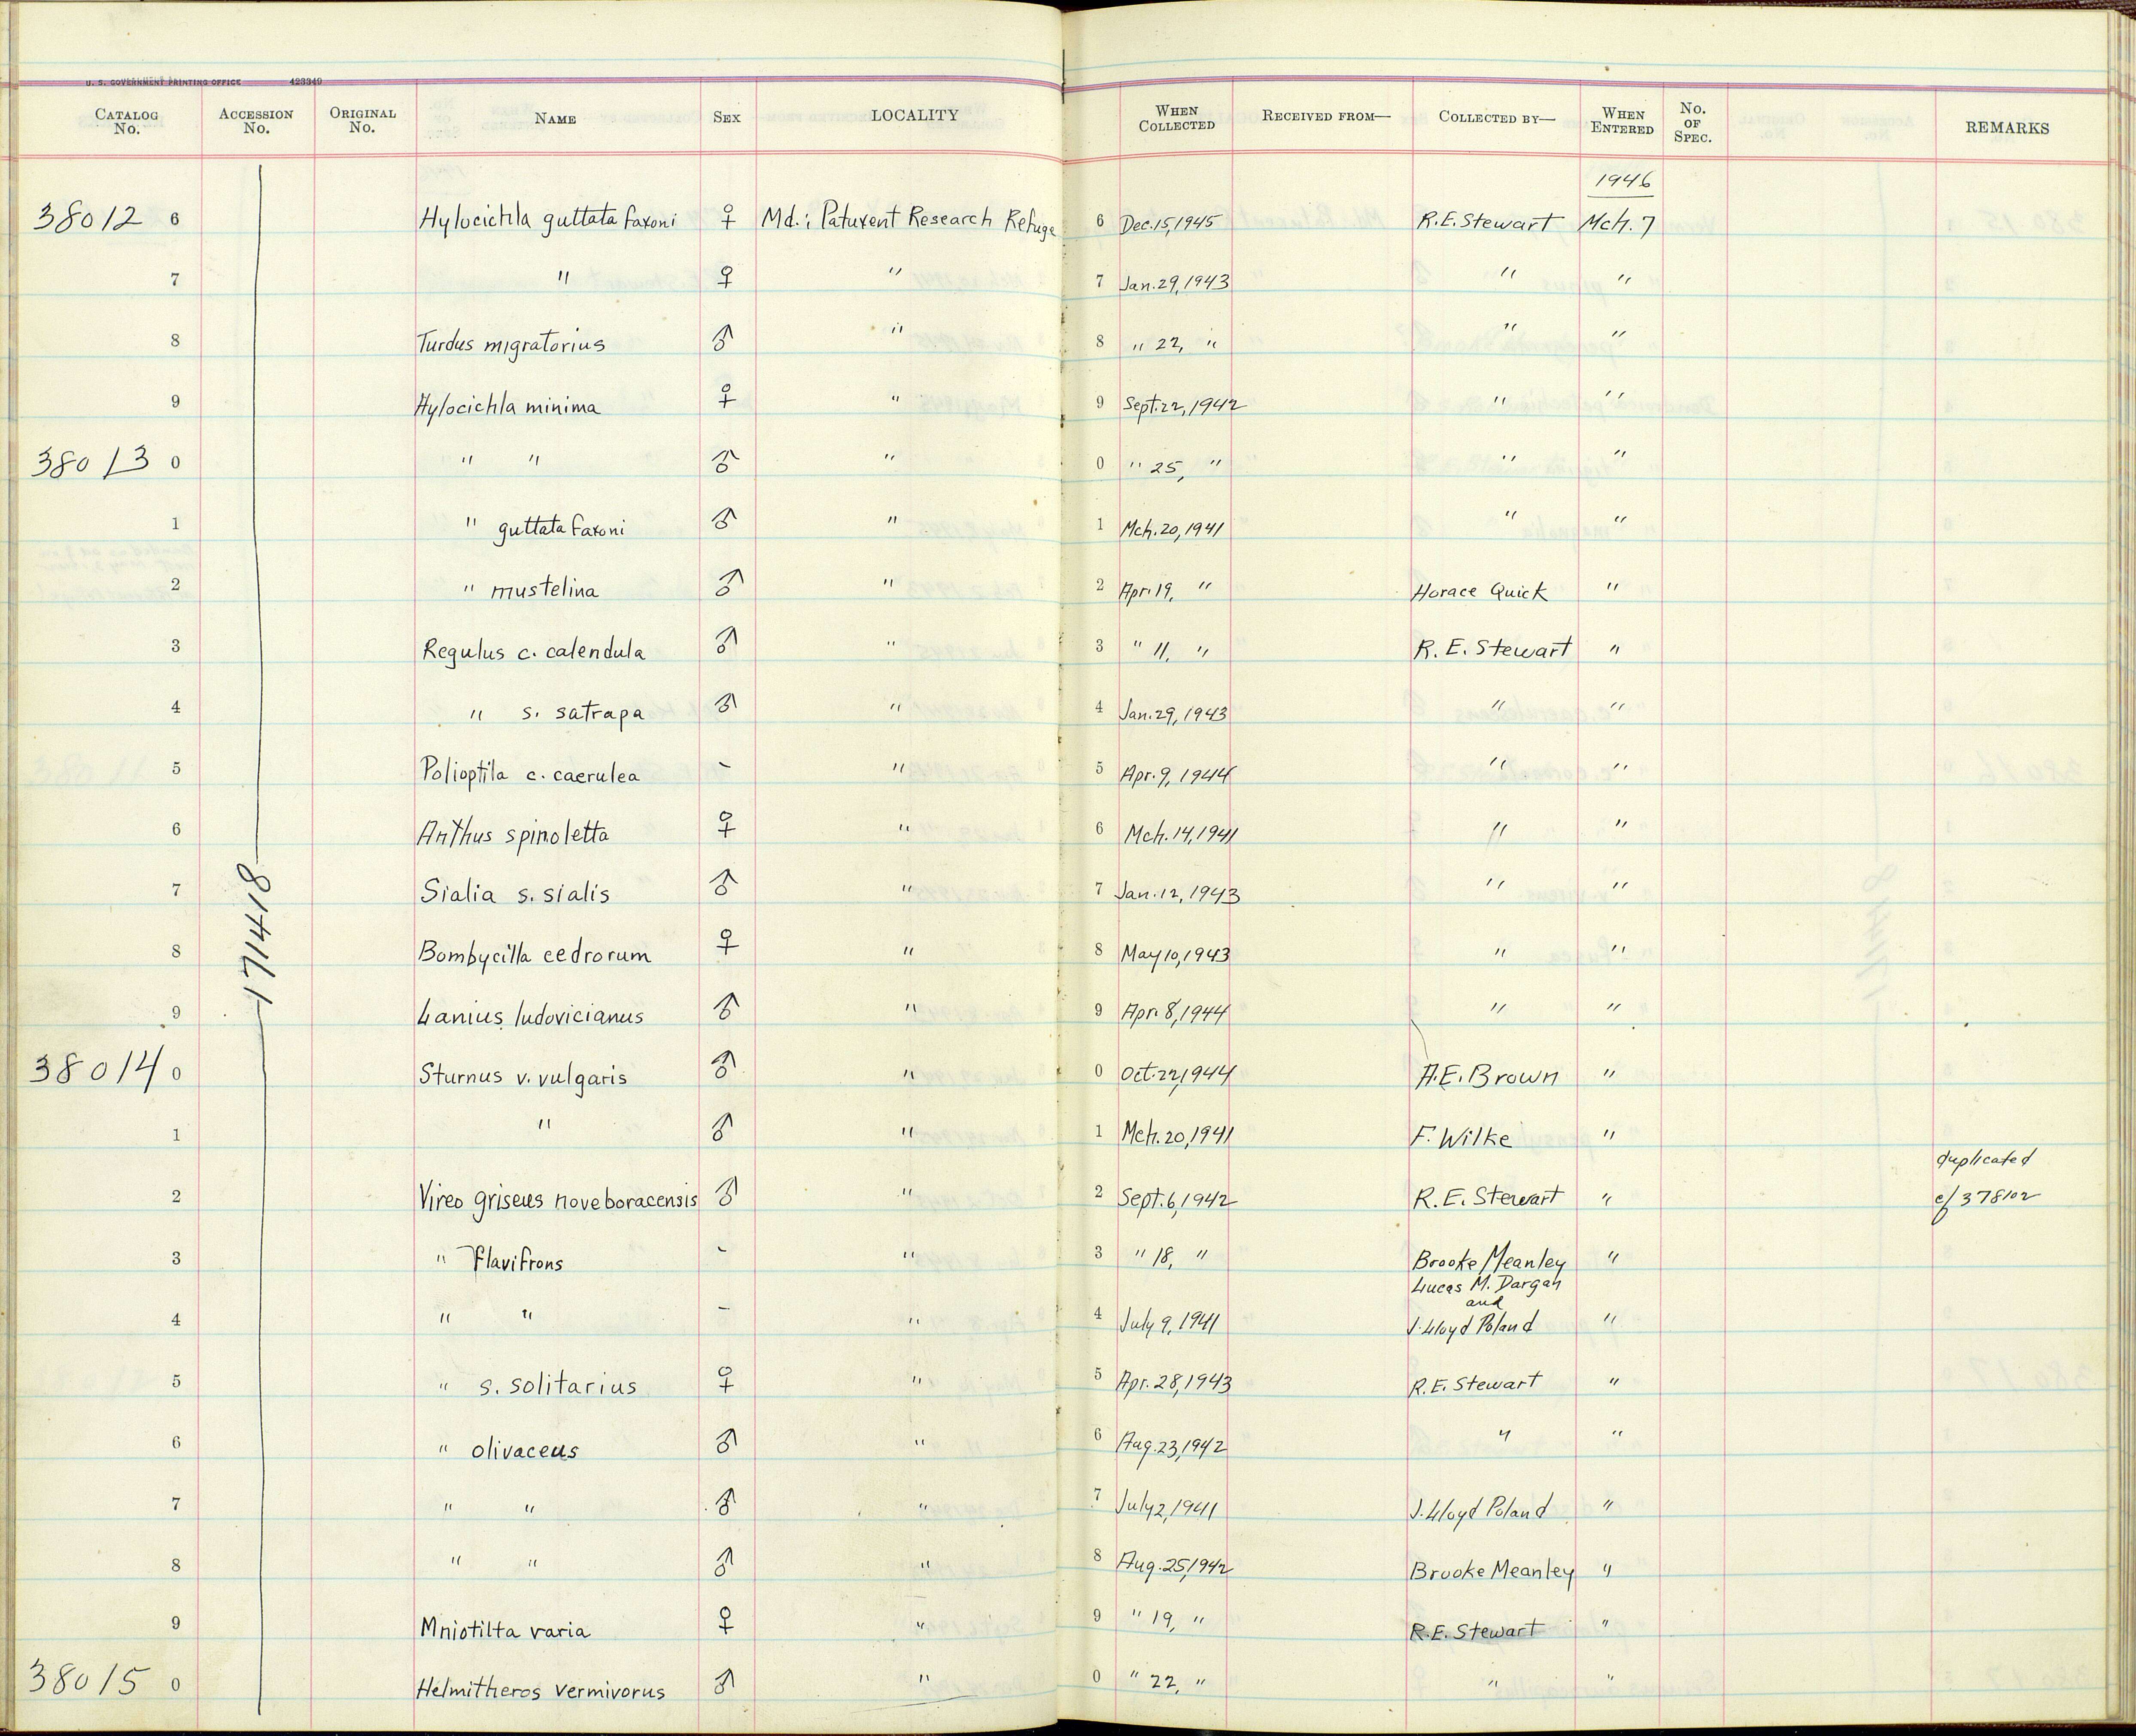 U. S. GOVERNMENT PRINTING OFFICE 423349
CATALOG No. ACCESSION No. ORIGINAL No. NAME SEX LOCALITY WHEN COLLECTED RECEIVED FROM— COLLECTED BY— WHEN ENTERED No. OF SPEC. REMARKS
1946
38012 6 Hylocichla guttata faxoni ♀ Md.: Patuxent Research Refuge 6 Dec.15,1945 R.E.Stewart Mch.7
7 " ♀ " 7 Jan.29,1943 " "
8 Turdus migratorius ♂ " 8 " 22, " " "
9 Hylocichla minima ♀ " 9 Sept.22,1942 " "
38013 0 " " ♂ " 0 " 25, " " "
1 " guttata faxoni ♂ " 1 Mch.20,1941 " "
2 " mustelina ♂ " 2 Apr.19, " Horace Quick "
3 Regulus c. calendula ♂ " 3 " 11, " R.E. Stewart "
4 " s. satrapa ♂ " 4 Jan.29,1943 " "
5 Polioptila c. caerulea - " 5 Apr.9,1944 " "
6 Anthus spinoletta ♀ " 6 Mch.14,1941 " "
171418
7 Sialia s. sialis ♂ " 7 Jan.12,1943 " "
8 Bombycilla cedrorum ♀ " 8 May10,1943 " "
9 Lanius ludovicianus ♂ " 9 Apr.8,1944 " "
38014 0 Sturnus v. vulgaris ♂ " 0 Oct.22,1944 A.E.Brown "
1 " ♂ " 1 Mch.20,1941 F. Wilke "
duplicated
2 Vireo griseus noveboracensis ♂ " 2 Sept.6,1942 R.E. Stewart " cf 378102
3 " flavifrons - " 3 " 18, " Brooke Meanley "
Lucas M. Dargan
and
4 " " - " 4 July 9,1941 J.Lloyd Poland "
5 " s. solitarius ♀ " 5 Apr.28,1943 R.E. Stewart "
6 " olivaceus ♂ " 6 Aug.23,1942 " "
7 " " ♂ " 7 July2,1941 J.Lloyd Poland "
8 " " ♂ " 8 Aug.25,1942 Brooke Meanley "
9 Mniotilta varia ♀ " 9 " 19, " R.E. Stewart "
38015 0 Helmitheros vermivorus ♂ " 0 " 22, " " "